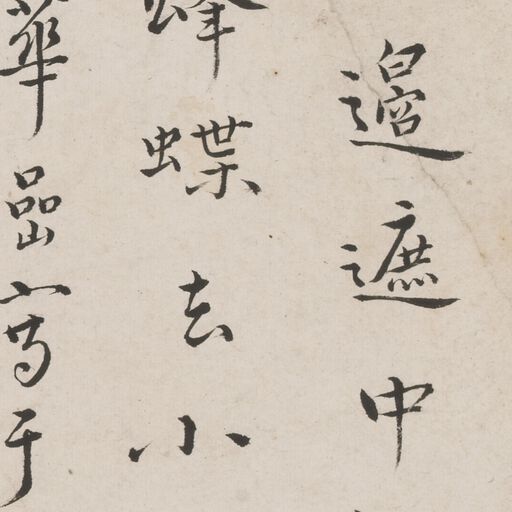 邉遮中
蜂蝶去小
華嵒寫于